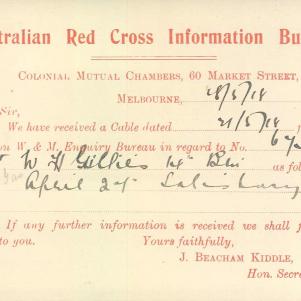 stralian Red Cross Information Bu
COLONIAL MUTUAL CHAMBERS, 60 MARKET STREET,
MELBOURNE, 28/5/18
Sir,
We have received a Cable dated 21/5/18
on W. & M. Enquiry Bureau in regard to No. 67
W H Gillies 14" Bn as fol
Gas April 24 Salisbury
If any further information is received we shall f
to you. Yours faithfully,
J. BEACHAM KIDDLE,
Hon. Secre